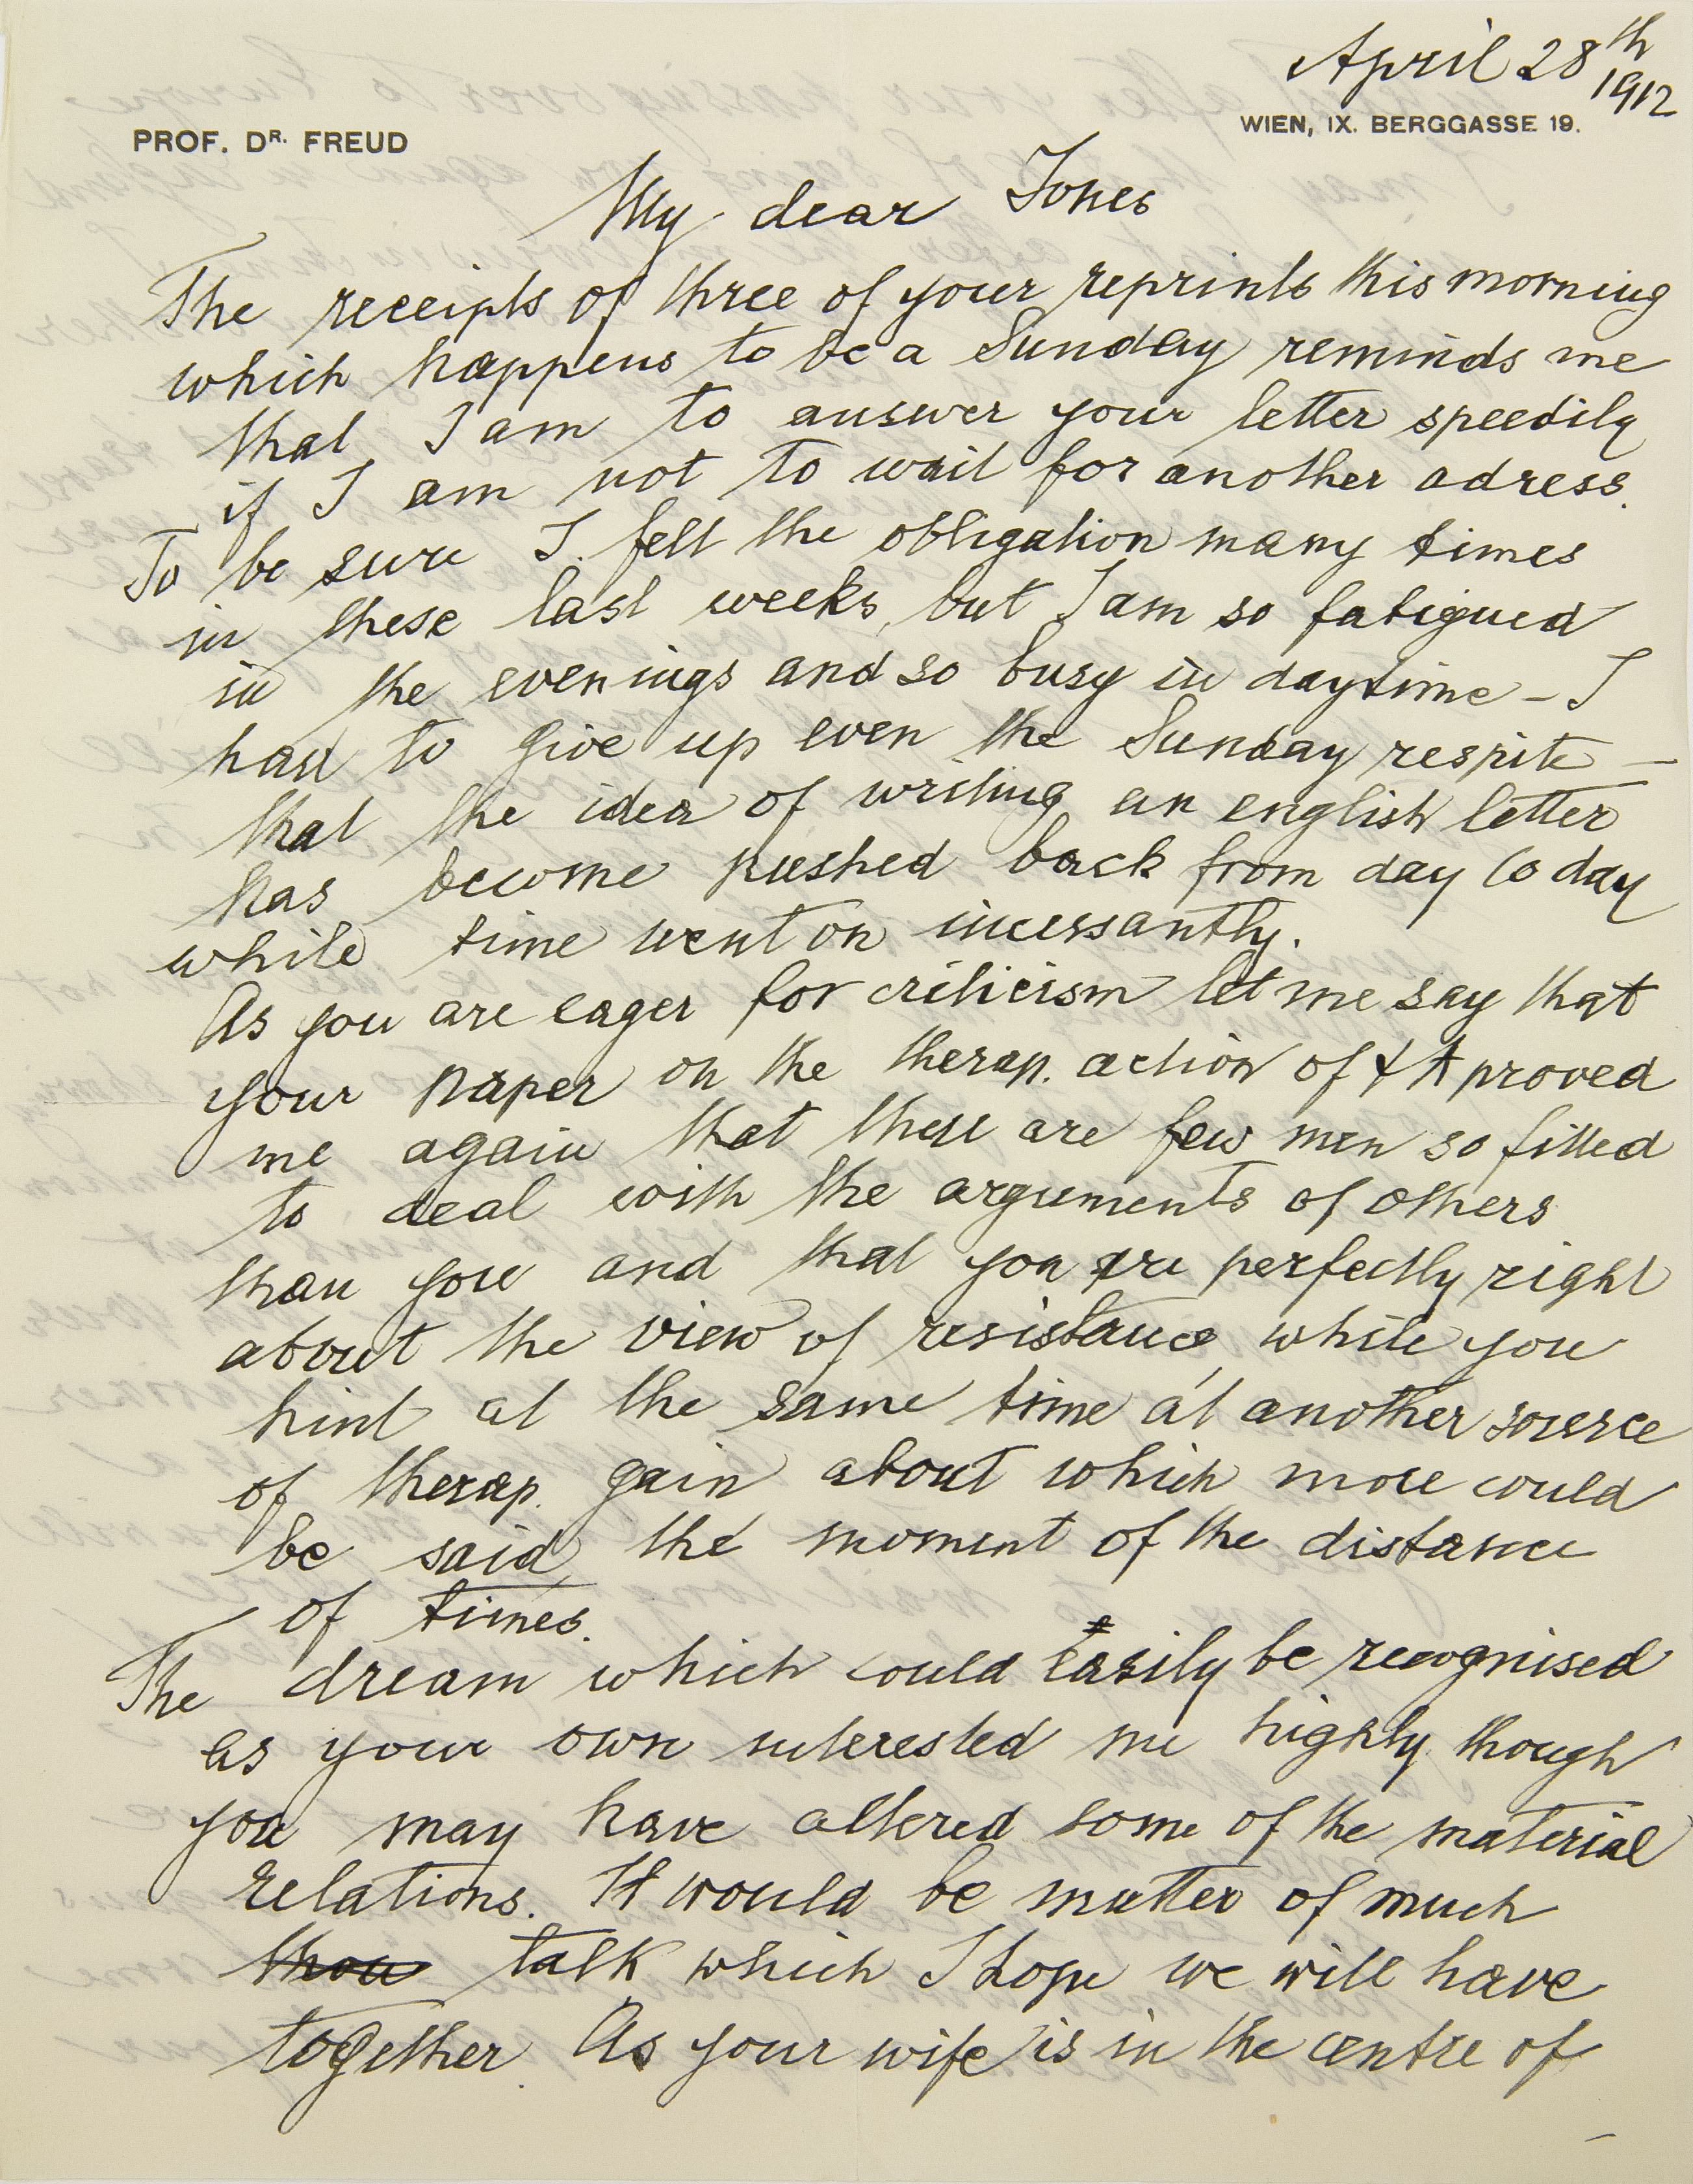 April 28th
1912
PROF. DR. FREUD
WIEN, IX. BERGGASSE 19.
My dear Jones
The receipts of three of your reprints this morning
which happens to be a Sunday reminds me
that I am to answer your letter speedily
if I am not to wait for another adress.
To be sure I felt the obligation many times
in these last weeks, but I am so fatigued
in the evenings and so busy in daytime – I
had to give up even the Sunday respite –
that the idea of writing an english letter
has become pushed back from day to day
while time went on incessantly.
As you are eager for criticism let me say that
your paper on the therap. action of ΨA proved
me again that there are few men so fitted
to deal with the arguments of others
than you and that you are perfectly right
about the view of resistance, while you
hint at the same time at another source
of therap. gain about which more could
be said, the moment of the distance
of times.
The dream which could easily be recognised
as your own interested me highly though
you may have altered some of the material
relations. It would be matter of much
talk which I hope we will have
together. As your wife is in the centre of